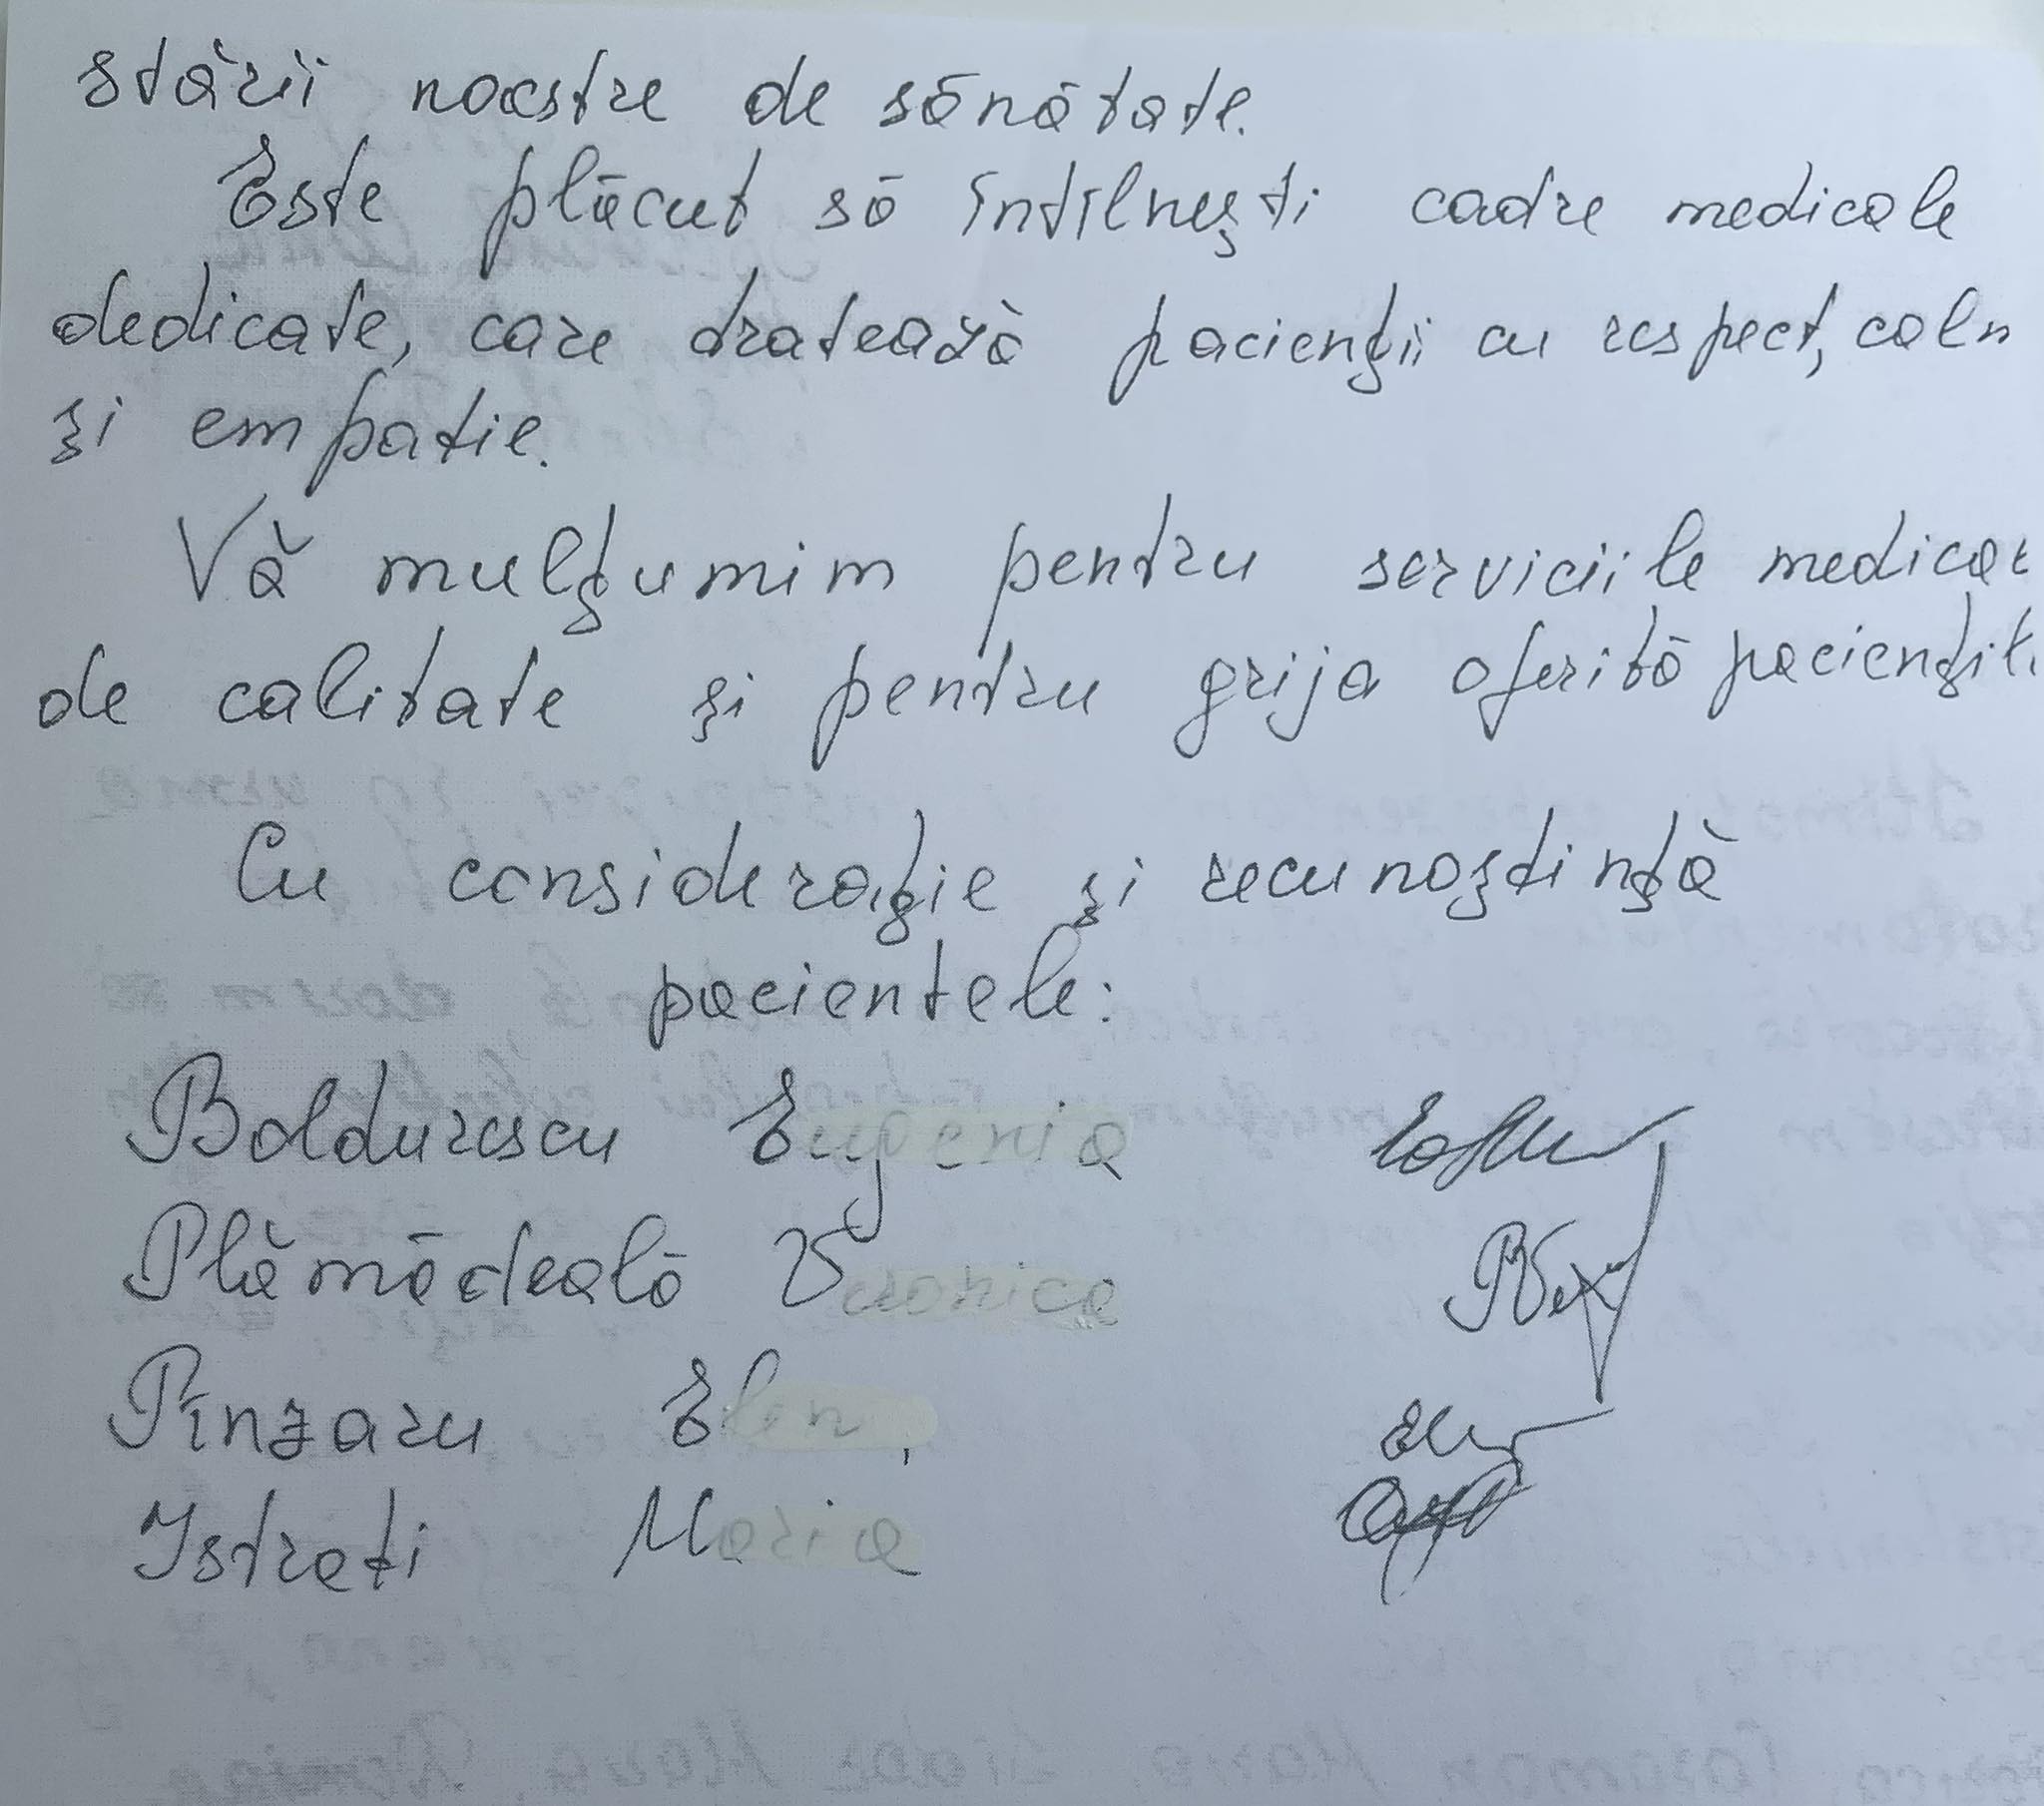 stării noastre de sănătate.
Este plăcut să întîlnești cadre medicale
dedicate, care tratează pacienții cu respect, calm
și empatie.
Vă mulțumim pentru serviciile medicale
de calitate și pentru grija oferită pacienților
Cu considerație și recunoștință
pacientele:
Boldurescu Eugenia
Plămădeală Veronica
Pînzaru Elena
Istrati Maria